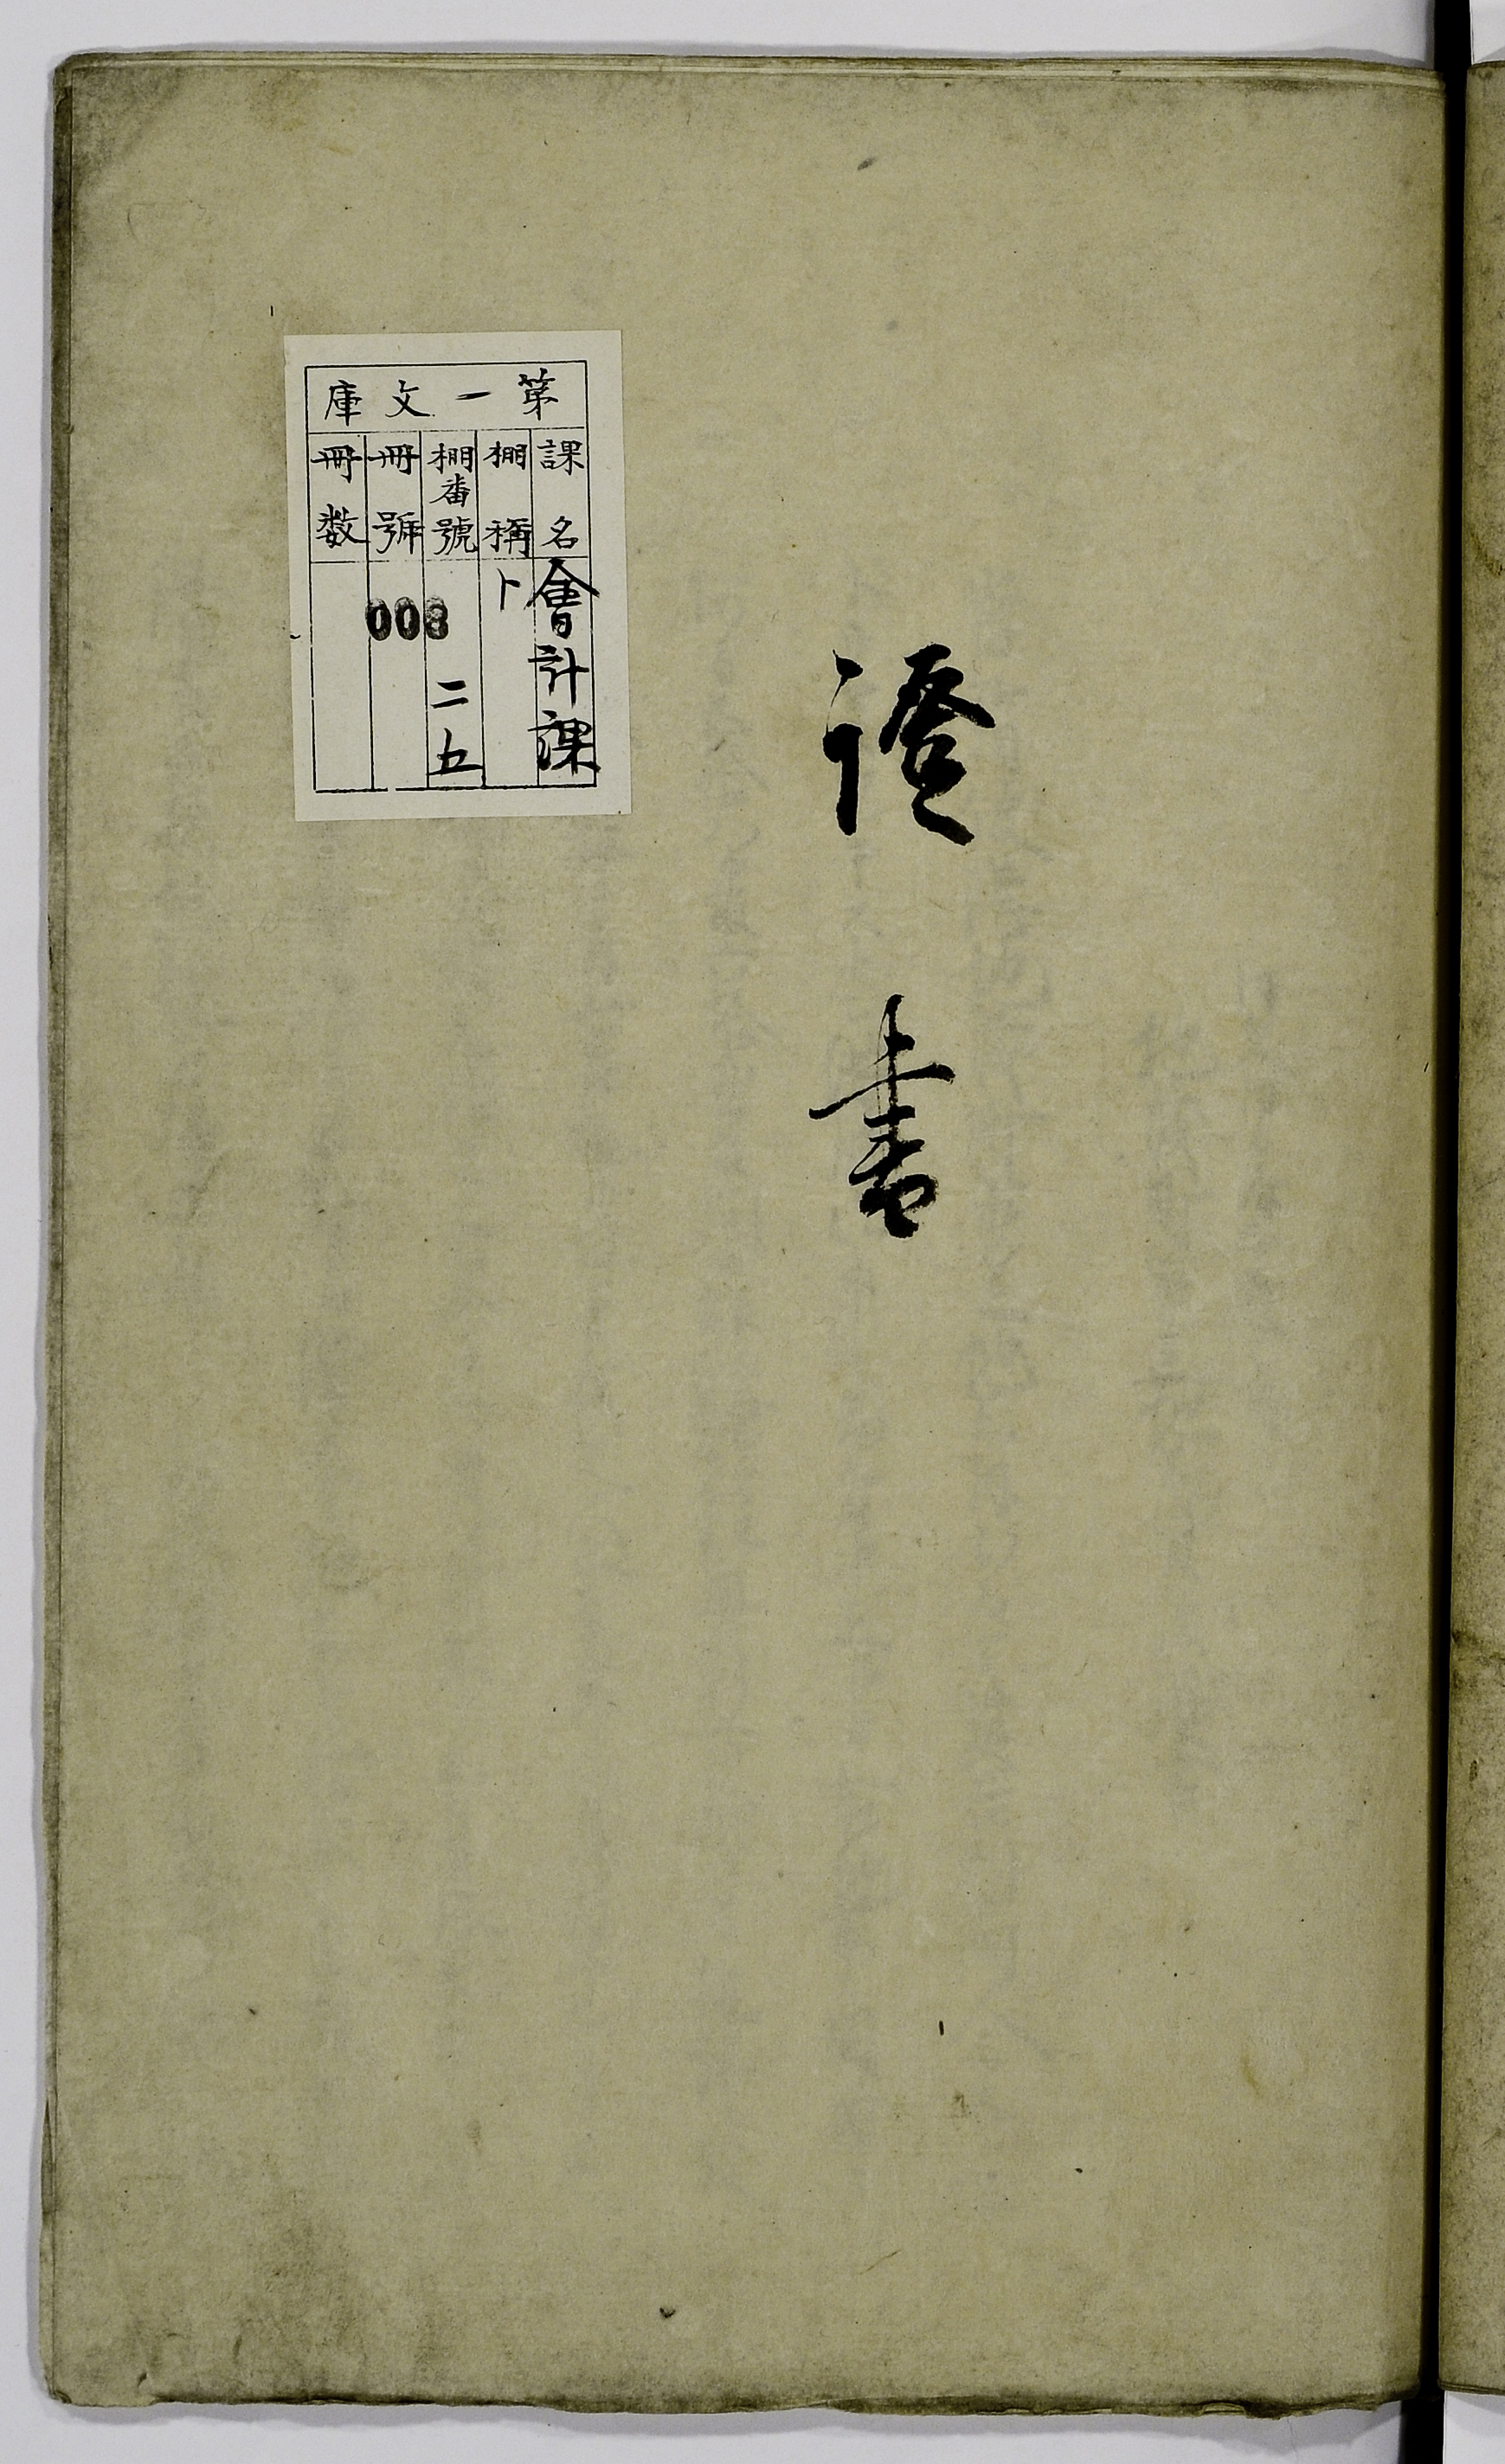 證書
第一文庫
課名 會計課
棚稱 ト
棚番號 二五
冊號 008
冊数